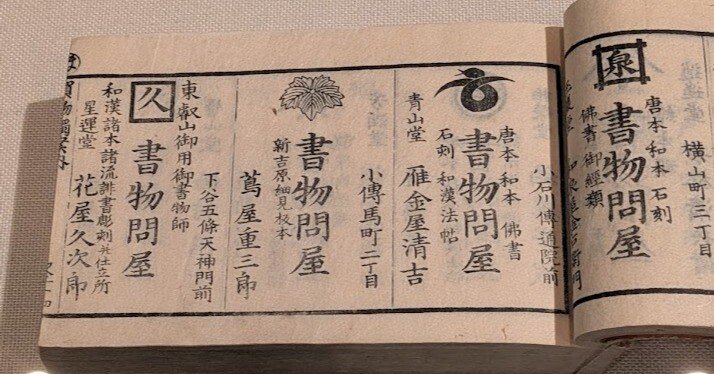 横山町三丁目
泉
唐本 和本 石刻
書物問屋
佛書 御經類
小石川傳通院前
唐本 和本 佛書
書物問屋
石刻 和漢法帖
青山堂 雁金屋清吉
小傳馬町二丁目
書物問屋
新吉原細見板本
蔦屋重三郎
下谷五條天神門前
久
書物問屋
東叡山御用御書物師
和漢諸本諸流誹書彫刻并仕立所
星運堂 花屋久次郎